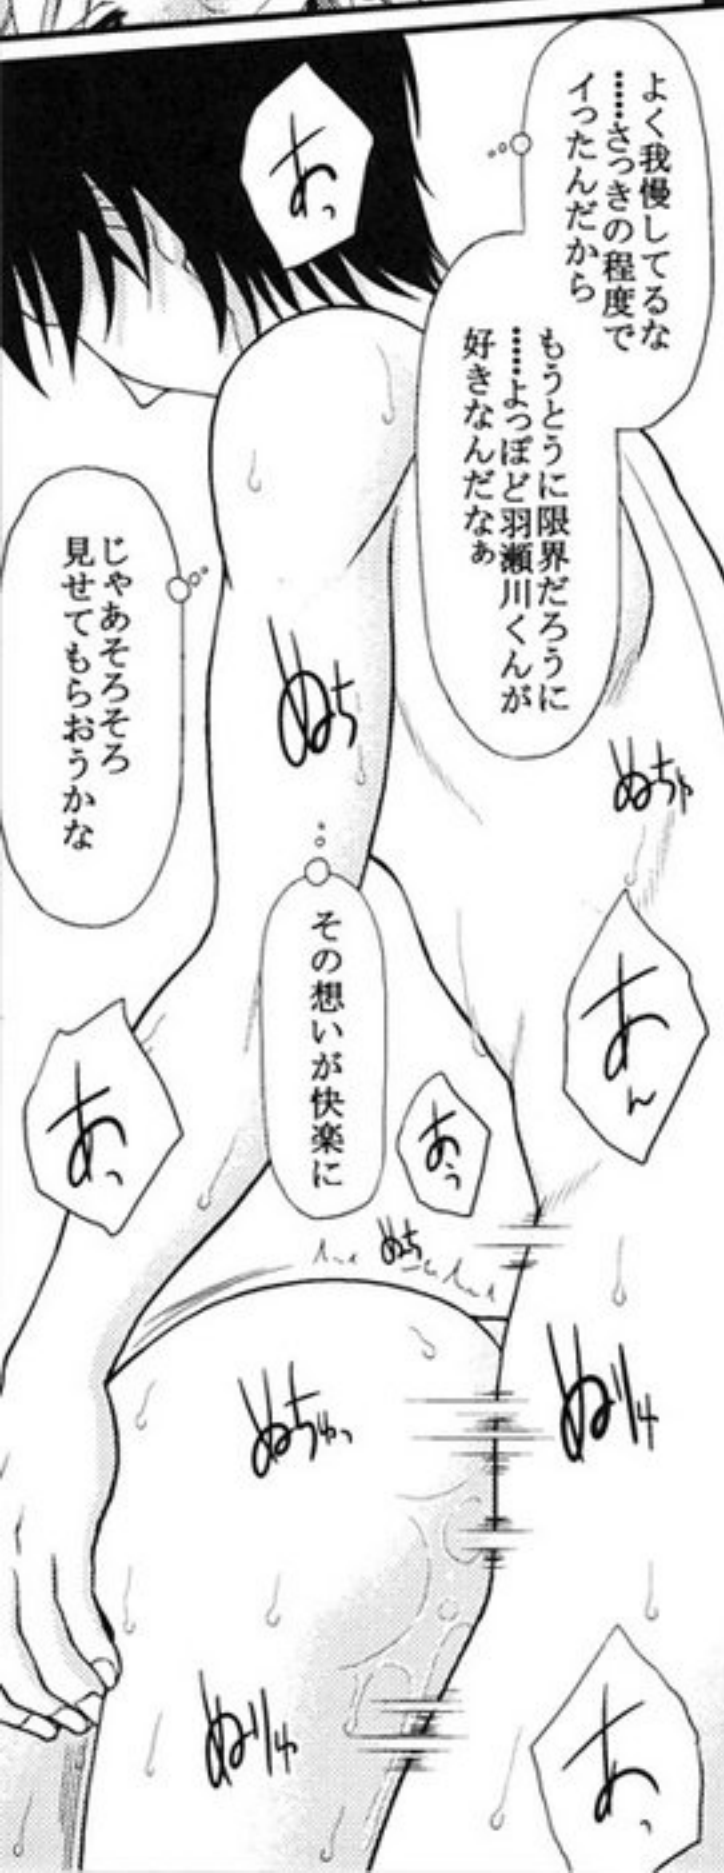 よく我慢してるな
……さっきの程度で
イったんだから
もうとうに限界だろうに
……よっぽど羽瀬川くんが
好きなんだなぁ
あっ
じゃあそろそろ
見せてもらおうかな
ぬち
ぬちゃ
その想いが快楽に
あん
あぅ
あっ
ぬち
ぬちゅっ
ぬりゅ
ぬりゅ
あっ